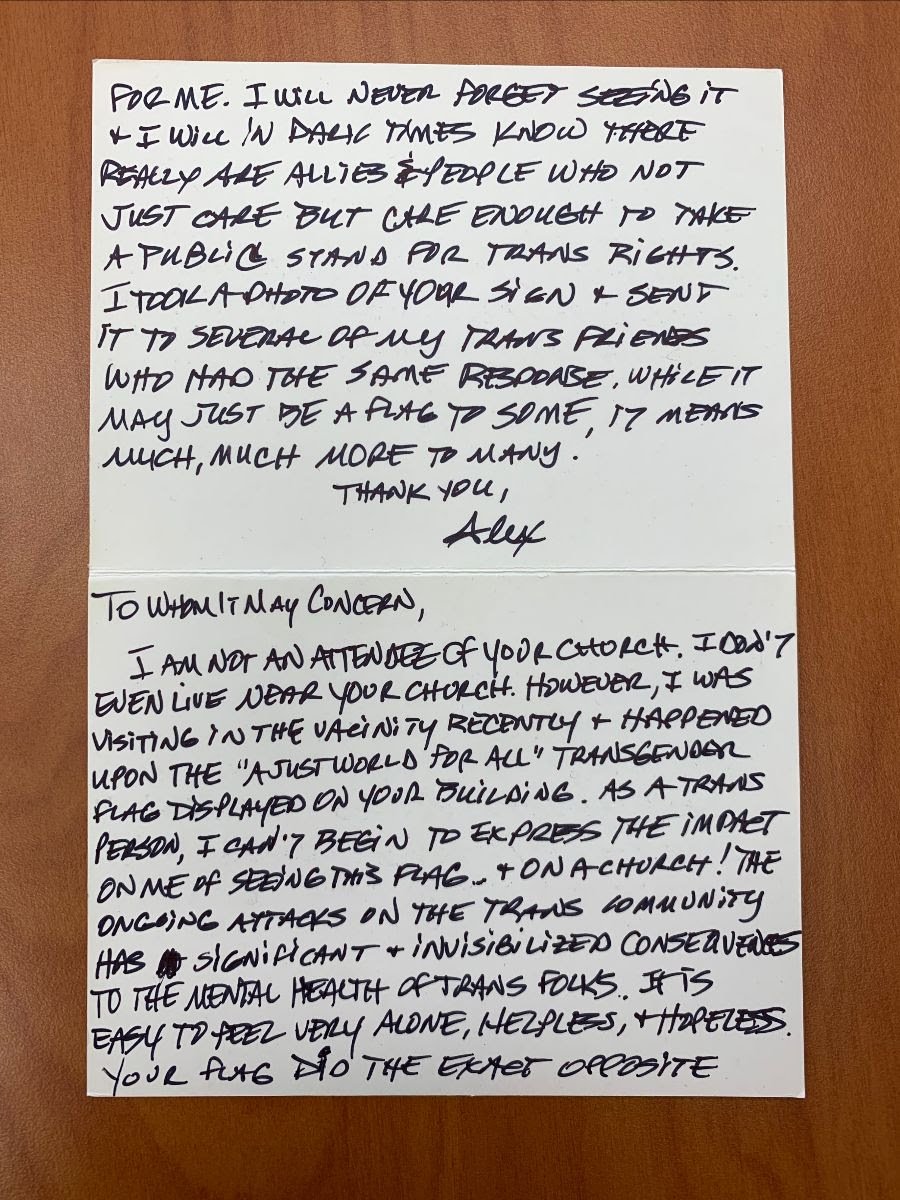 FOR ME. I WILL NEVER FORGET SEEING IT
+ I WILL IN DARK TIMES KNOW THERE
REALLY ARE ALLIES & PEOPLE WHO NOT
JUST CARE BUT CARE ENOUGH TO TAKE
A PUBLIC STAND FOR TRANS RIGHTS.
I TOOK A PHOTO OF YOUR SIGN + SENT
IT TO SEVERAL OF MY TRANS FRIENDS
WHO HAD THE SAME RESPONSE. WHILE IT
MAY JUST BE A FLAG TO SOME, IT MEANS
MUCH, MUCH MORE TO MANY.
THANK YOU,
Alex
TO WHOM IT MAY CONCERN,
I AM NOT AN ATTENDEE OF YOUR CHURCH. I DON'T
EVEN LIVE NEAR YOUR CHURCH. HOWEVER, I WAS
VISITING IN THE VACINITY RECENTLY + HAPPENED
UPON THE "A JUST WORLD FOR ALL" TRANSGENDER
FLAG DISPLAYED ON YOUR BUILDING. AS A TRANS
PERSON, I CAN'T BEGIN TO EXPRESS THE IMPACT
ON ME OF SEEING THIS FLAG... + ON A CHURCH! THE
ONGOING ATTACKS ON THE TRANS COMMUNITY
HAS SIGNIFICANT + INVISIBILIZED CONSEQUENCES
TO THE MENTAL HEALTH OF TRANS FOLKS. IT IS
EASY TO FEEL VERY ALONE, HELPLESS, + HOPELESS.
YOUR FLAG DID THE EXACT OPPOSITE